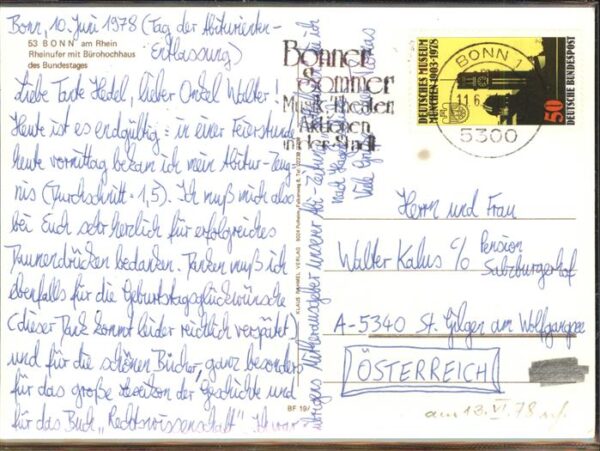 Bonn, 10. Juni 1978 (Tag der Abiturienten-
Entlassung)
53 BONN am Rhein
Rheinufer mit Bürohochhaus
des Bundestages
Liebe Tante Hedel, lieber Onkel Walter!
Heute ist es endgültig: in einer Feierstunde
heute vormittag bekam ich mein Abitur-Zeug-
nis (Durchschnitt: 1,5). Ich muß mich also
bei Euch sehr herzlich für erfolgreiches
Daumendrücken bedanken. Danken muß ich
ebenfalls für die Geburtstagsglückwünsche
(dieser Dank kommt leider reichlich verspätet)
und für die schönen Bücher, ganz besonders
für das große Lexikon der Geschichte und
für das Buch „Rechtswissenschaft". Ich war
übriges Mitherausgeber unserer Abi-Zeitung
nach
Viele Grüße
KLAUS VERLAG
BF 19/
Bonner
Sommer
Musik Theater
Aktionen
in der Stadt
BONN 1
11.6.
5300
DEUTSCHES MUSEUM
MÜNCHEN 1903-1978
50
DEUTSCHE BUNDESPOST
Herrn und Frau
Walter Kalus c/o Pension
Salzburgerhof
A-5340 St. Gilgen am Wolfgangsee
ÖSTERREICH
am 13. VI. 78